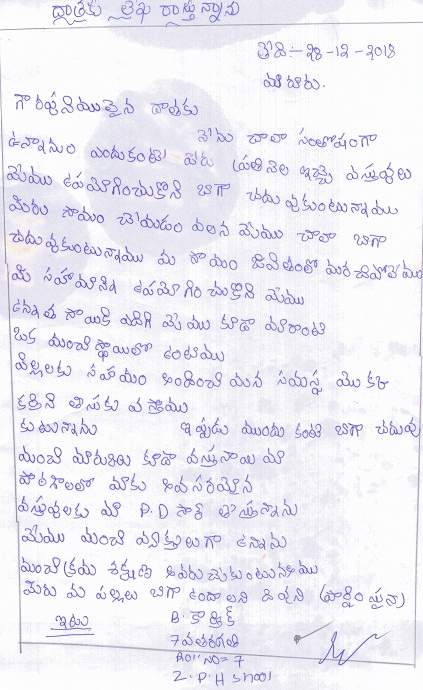 ధాతకు లేఖ రాస్తున్నాను
తేది:- 28-12-2018
మాచారు.
గౌరవనీయమైన దాతకు
నేను చాలా సంతోషంగా
ఉన్నాను ఎందుకంటే మీరు ప్రతినెల ఇచ్చే వస్తువులు
మేము ఉపయోగించుకొని బాగా చదువుకుంటున్నాము
మీరు సాయం చేయడం వలన మేము చాలా బాగా
చదువుకుంటున్నాము మీ సాయం జీవితంలో మరచిపోలేము
మీ సహాయాన్ని ఉపయోగించుకొని మేము
ఉన్నత స్థాయికి ఎదిగి మేము కూడా మీలాంటి
ఒక మంచి స్థాయిలో ఉంటము
పిల్లలకు సహాయం అందించి మన సమస్త యొక్క
కీర్తిని తీసుకు వస్తాము
కుటున్నాను ఇప్పుడు ముందు కంటే బాగా చదువు
మంచి మార్కులు కూడా వస్తున్నాయి మా
పాఠశాలలో మాకు అవసరమైన
వస్తువులకు మా P.D సార్ తెస్తున్నాను
మేము మంచి వ్యక్తులుగా ఉన్నాను
మంచి క్రమ శిక్షణ అలవరుచుకుంటున్నాము
మీరు మీ పిల్లలు బాగా ఉండాలని దేవుని ప్రార్థిస్తున్నా
ఇట్లు
B. కార్తీక్
7వతరగతి
Roll no= 7
Z.P.H school